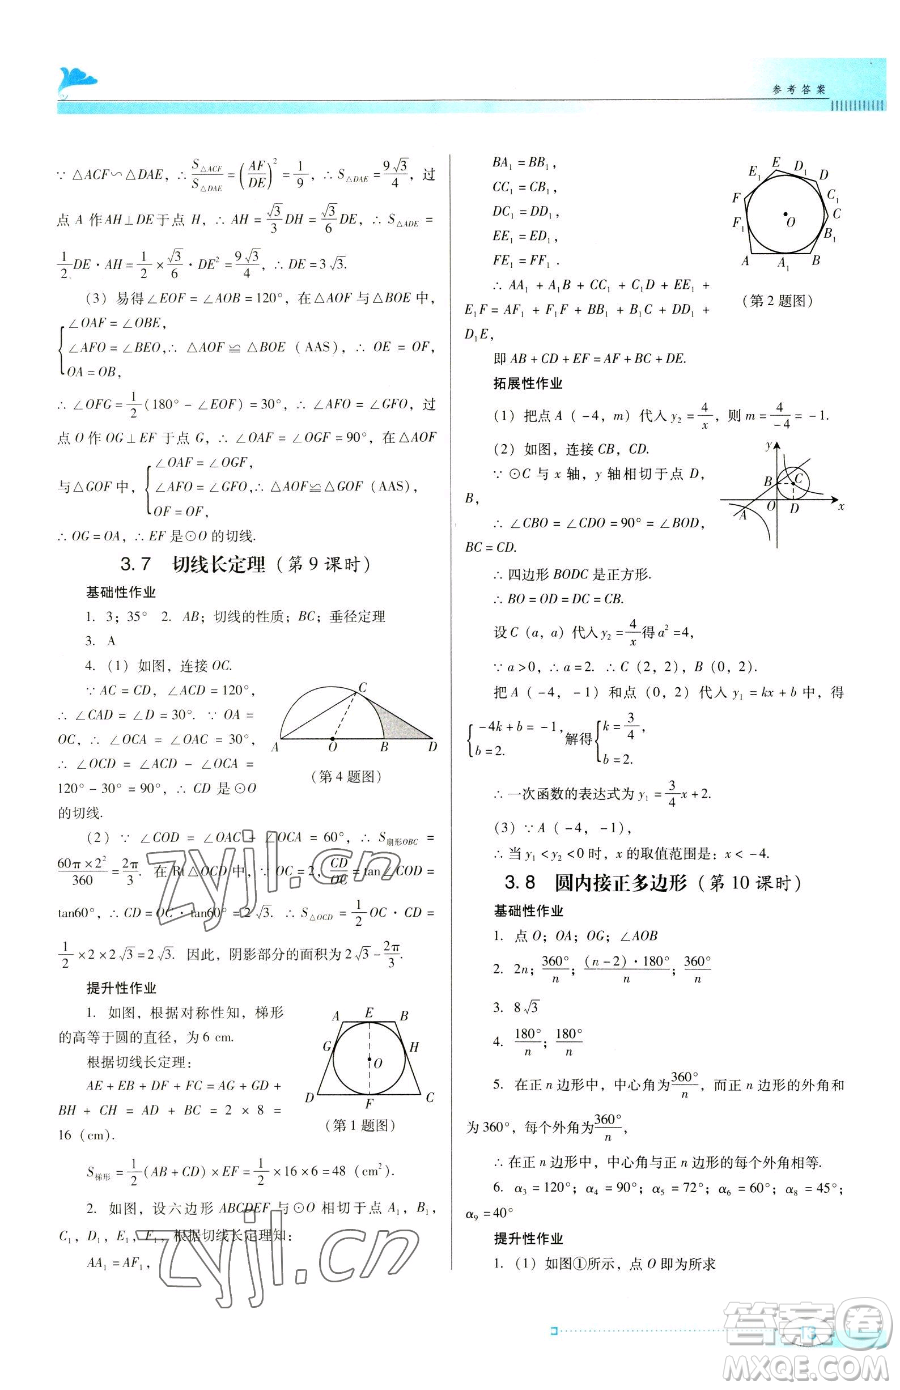 参考答案
∵ △ACF∽△DAE, ∴ S△ACF/S△DAE = (AF/DE)² = 1/9, ∴ S△DAE = 9√3/4, 过
点 A 作AH⊥DE于点 H, ∴ AH = √3/3 DH = √3/6 DE, ∴ S△ADE =
1/2 DE · AH = 1/2 × √3/6 · DE² = 9√3/4, ∴ DE = 3√3.
(3) 易得∠EOF = ∠AOB = 120°, 在△AOF 与△BOE 中,
∠OAF = ∠OBE,
∠AFO = ∠BEO, ∴ △AOF ≌ △BOE (AAS), ∴ OE = OF,
OA = OB,
∴ ∠OFG = 1/2 (180° − ∠EOF) = 30°, ∴ ∠AFO = ∠GFO, 过
点 O 作 OG⊥EF 于点 G, ∴ ∠OAF = ∠OGF = 90°, 在△AOF
∠OAF = ∠OGF,
与△GOF 中, ∠AFO = ∠GFO, ∴ △OAF≌△OGF (AAS),
OF = OF,
∴ OG = OA, ∴ EF 是⊙O 的切线.
3.7 切线长定理(第9课时)
基础性作业
1. 3; 35° 2. AB; 切线的性质; BC; 垂径定理
3. A
4. (1) 如图, 连接 OC.
∵ AC = CD, ∠ACD = 120°,
∴ ∠CAD = ∠D = 30°. ∵ OA =
OC, ∴ ∠OCA = ∠OAC = 30°,
∴ ∠OCD = ∠ACD − ∠OCA =
120° − 30° = 90°, ∴ CD 是⊙O
的切线.
A O B D C
(第4题图)
(2) ∵ ∠COD = ∠OAC + ∠OCA = 60°, ∴ S扇形OBC =
60π×2²/360 = 2π/3. 在 Rt△OCD 中, OC = 2, CD/OC = tan∠COD =
tan60°, ∴ CD = OC · tan60° = 2√3. ∴ S△OCD = 1/2 OC · CD =
1/2 × 2 × 2√3 = 2√3. 因此, 阴影部分的面积为 2√3 − 2π/3.
提升性作业
1. 如图, 根据对称性知, 梯形
的高等于圆的直径, 为 6 cm.
根据切线长定理:
AE + EB + DF + FC = AG + GD +
BH + CH = AD + BC = 2 × 8 =
16 (cm).
A E B G H O D F C
(第1题图)
S梯形 = 1/2 (AB + CD) × EF = 1/2 × 16 × 6 = 48 (cm²).
2. 如图, 设六边形 ABCDEF 与⊙O 相切于点 A₁, B₁,
C₁, D₁, E₁, F₁, 根据切线长定理知:
AA₁ = AF₁,
BA₁ = BB₁,
CC₁ = CB₁,
DC₁ = DD₁,
EE₁ = ED₁,
FE₁ = FF₁.
E D₁ D E₁ C₁ F C F₁ O B₁ A A₁ B
(第2题图)
∴ AA₁ + A₁B + CC₁ + C₁D + EE₁ +
E₁F = AF₁ + F₁F + BB₁ + B₁C + DD₁ +
D₁E,
即 AB + CD + EF = AF + BC + DE.
拓展性作业
(1) 把点 A (−4, m) 代入 y₂ = 4/x, 则 m = 4/−4 = −1.
(2) 如图, 连接 CB, CD.
∵ ⊙C 与 x 轴, y 轴相切于点 D,
B,
∴ ∠CBO = ∠CDO = 90° = ∠BOD,
BC = CD.
y B C O D A x
∴ 四边形 BODC 是正方形.
∴ BO = OD = DC = CB.
设 C (a, a) 代入 y₂ = 4/x 得 a² = 4,
∵ a > 0, ∴ a = 2. ∴ C (2, 2), B (0, 2).
把 A (−4, −1) 和点 (0, 2) 代入 y₁ = kx + b 中, 得
−4k + b = −1, b = 2. 解得 k = 3/4, b = 2.
∴ 一次函数的表达式为 y₁ = 3/4 x + 2.
(3) ∵ A (−4, −1),
∴ 当 y₁ < y₂ < 0 时, x 的取值范围是: x < −4.
3.8 圆内接正多边形(第10课时)
基础性作业
1. 点 O; OA; OG; ∠AOB
2. 2n; 360°/n; (n−2)·180°/n; 360°/n
3. 8√3
4. 180°/n; 180°/n
5. 在正 n 边形中, 中心角为 360°/n, 而正 n 边形的外角和
为 360°, 每个外角为 360°/n,
∴ 在正 n 边形中, 中心角与正 n 边形的每个外角相等.
6. α₃ = 120°; α₄ = 90°; α₅ = 72°; α₆ = 60°; α₈ = 45°;
α₉ = 40°
提升性作业
1. (1) 如图①所示, 点 O 即为所求
13
zyjl.cn
zyjl.cn
答案圈
MXQE.COM